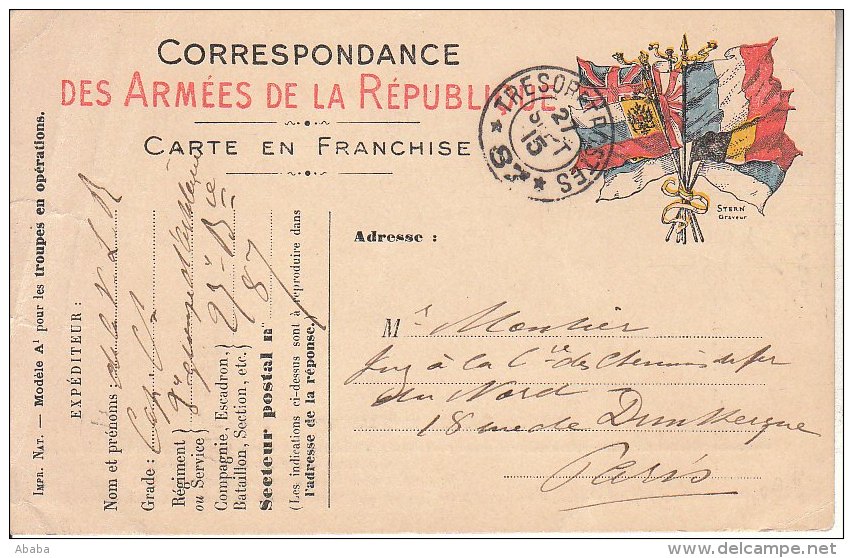 CORRESPONDANCE
DES ARMÉES DE LA RÉPUBLIQUE
CARTE EN FRANCHISE
TRESOR ET POSTES
21
SEPT
15
* 87 *
STERN
Graveur
Adresse :
Mr Montier
Ing à la Cie des Chemins de fer
du Nord
18 rue de Dunkerque
Paris
IMPR. NAT. — Modèle A1 pour les troupes en opérations.
EXPÉDITEUR :
Nom et prénoms : de la
Grade :
Régiment
ou Service
Compagnie, Escadron,
Bataillon, Section, etc.
Secteur postal n° 87
(Les indications ci-dessus sont à reproduire dans
l'adresse de la réponse.)
Ababa
www.delcampe.net